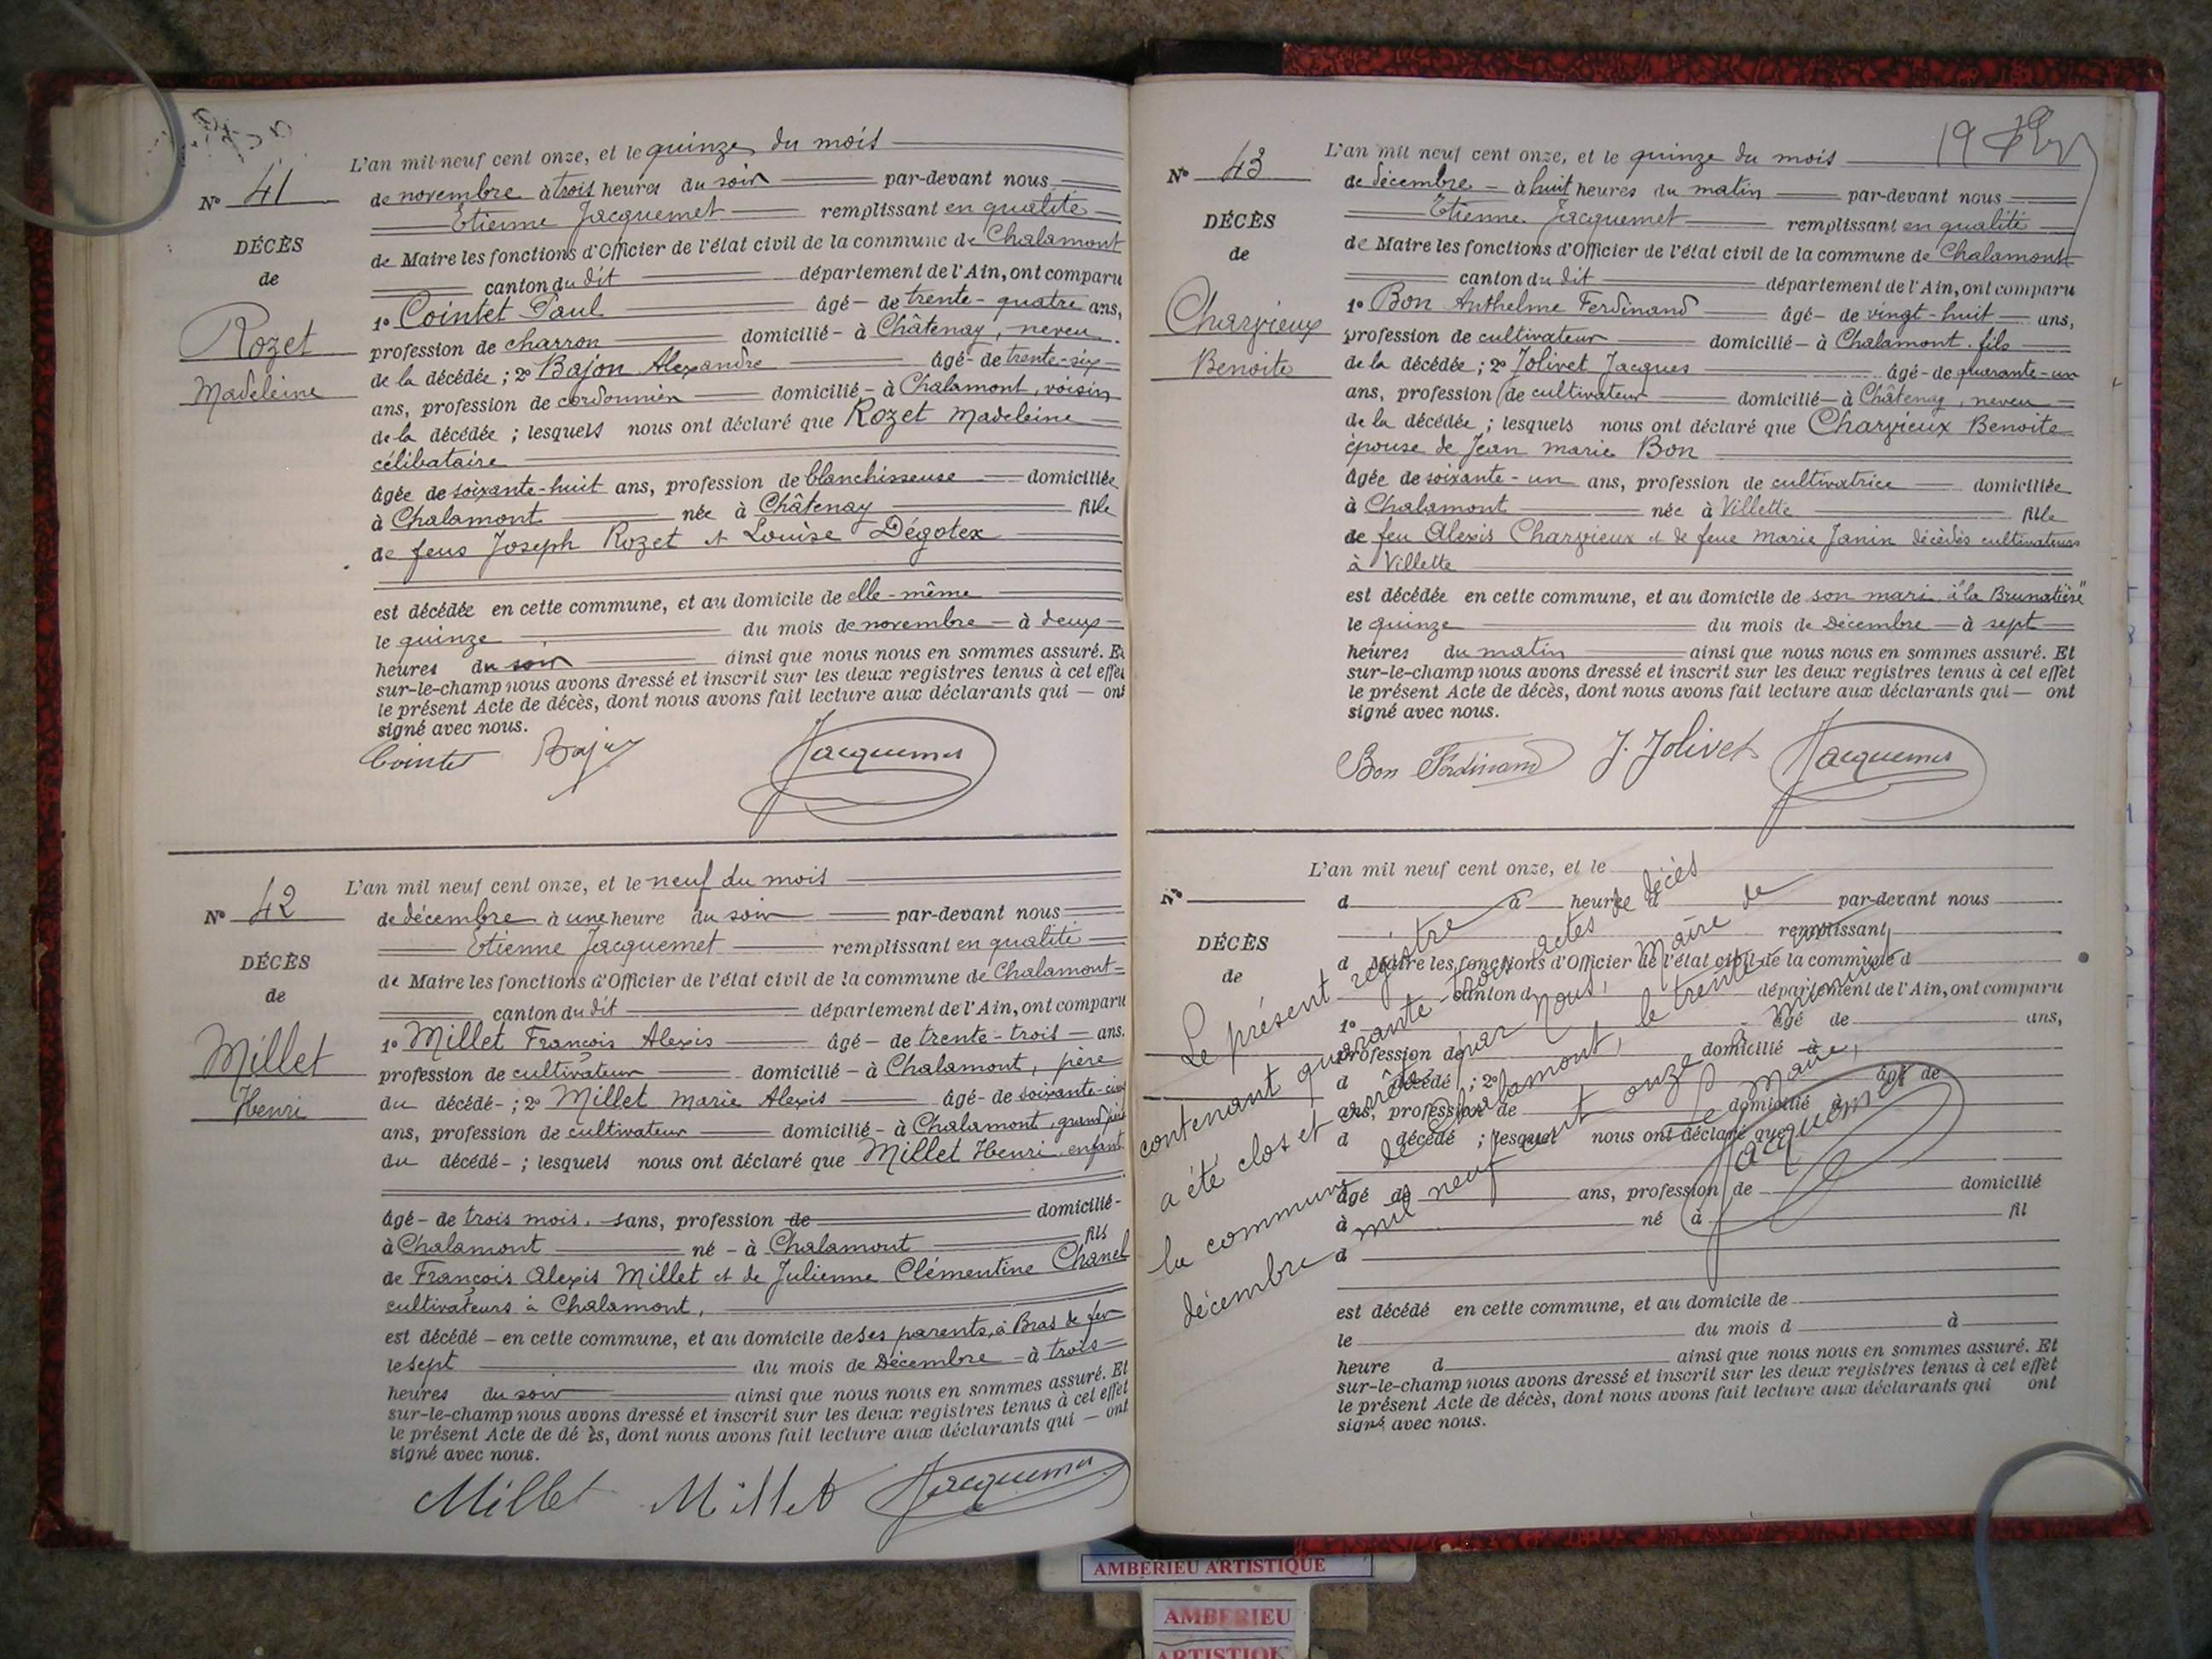 L'an mil neuf cent onze, et le quinze du mois
N° 41
de novembre à trois heures du soir par-devant nous
Etienne Jacquemet remplissant en qualité
DÉCÈS
de Maire les fonctions d'Officier de l'état civil de la commune de Chalamont
de
canton du dit département de l'Ain, ont comparu
1° Cointet Paul âgé - de trente-quatre ans,
Rozet
profession de charron domicilié - à Châtenay, neveu
de la décédée ; 2° Bajon Alexandre âgé - de trente-six
Madeleine
ans, profession de cordonnier domicilié - à Chalamont, voisin
de la décédée ; lesquels nous ont déclaré que Rozet Madeleine
célibataire
âgée de soixante-huit ans, profession de blanchisseuse domiciliée
à Chalamont née à Châtenay fille
de feus Joseph Rozet et Louise Dégotex
est décédée en cette commune, et au domicile de elle-même
le quinze du mois de novembre à deux
heures du soir ainsi que nous nous en sommes assuré. Et
sur-le-champ nous avons dressé et inscrit sur les deux registres tenus à cet effet
le présent Acte de décès, dont nous avons fait lecture aux déclarants qui — ont
signé avec nous.
Cointet Bajon Jacquemet
L'an mil neuf cent onze, et le neuf du mois
N° 42
de décembre à une heure du soir par-devant nous
Etienne Jacquemet remplissant en qualité
DÉCÈS
de Maire les fonctions d'Officier de l'état civil de la commune de Chalamont
de
canton du dit département de l'Ain, ont comparu
1° Millet François Alexis âgé - de trente-trois ans.
Millet
profession de cultivateur domicilié - à Chalamont, père
Henri
du décédé - ; 2° Millet Marie Alexis âgé - de soixante-cinq
ans, profession de cultivateur domicilié - à Chalamont, grand père
du décédé - ; lesquels nous ont déclaré que Millet Henri enfant
âgé - de trois mois, sans, profession de domicilié -
à Chalamont né - à Chalamont fils
de François Alexis Millet et de Julienne Clémentine Chanel
cultivateurs à Chalamont,
est décédé - en cette commune, et au domicile de ses parents, à Bras de fer
le sept du mois de Décembre à trois
heures du soir ainsi que nous nous en sommes assuré. Et
sur-le-champ nous avons dressé et inscrit sur les deux registres tenus à cet effet
le présent Acte de dé ès, dont nous avons fait lecture aux déclarants qui — ont
signé avec nous.
Millet Millet Jacquemet
19
L'an mil neuf cent onze, et le quinze du mois
N° 43
de décembre à huit heures du matin par-devant nous
Etienne Jacquemet remplissant en qualité
DÉCÈS
de Maire les fonctions d'Officier de l'état civil de la commune de Chalamont
de
canton du dit département de l'Ain, ont comparu
1° Bon Anthelme Ferdinand âgé - de vingt-huit ans,
Charvieux
profession de cultivateur domicilié - à Chalamont, fils
Benoite
de la décédée ; 2° Jolivet Jacques âgé - de quarante-un
ans, profession de cultivateur domicilié - à Châtenay, neveu
de la décédée ; lesquels nous ont déclaré que Charvieux Benoite
épouse de Jean Marie Bon
âgée de soixante-un ans, profession de cultivatrice domiciliée
à Chalamont née à Villette fille
de feu Alexis Charvieux et de feue Marie Janin décédés cultivateurs
à Villette
est décédée en cette commune, et au domicile de son mari, à "la Brunatière"
le quinze du mois de Décembre à sept
heures du matin ainsi que nous nous en sommes assuré. Et
sur-le-champ nous avons dressé et inscrit sur les deux registres tenus à cet effet
le présent Acte de décès, dont nous avons fait lecture aux déclarants qui — ont
signé avec nous.
Bon Ferdinand J. Jolivet Jacquemet
L'an mil neuf cent onze, et le
N°
d à heure d par-devant nous
remplissant
DÉCÈS
d Maire les fonctions d'Officier de l'état civil de la commune d
de
canton d département de l'Ain, ont comparu
1° âgé de ans,
profession de domicilié à
d décédé ; 2° âgé de
ans, profession de domicilié à
d décédé ; lesquel nous ont déclaré que
âgé de ans, profession de domicilié
à né à fil
d
est décédé en cette commune, et au domicile de
le du mois d à
heure d ainsi que nous nous en sommes assuré. Et
sur-le-champ nous avons dressé et inscrit sur les deux registres tenus à cet effet
le présent Acte de décès, dont nous avons fait lecture aux déclarants qui ont
signé avec nous.
Le présent registre de décès
contenant quarante-trois actes
a été clos et arrêté par Nous, Maire de
la commune de Chalamont, le trente
décembre mil neuf cent onze à
Le Maire,
Jacquemet
AMBERIEU ARTISTIQUE
AMBERIEU